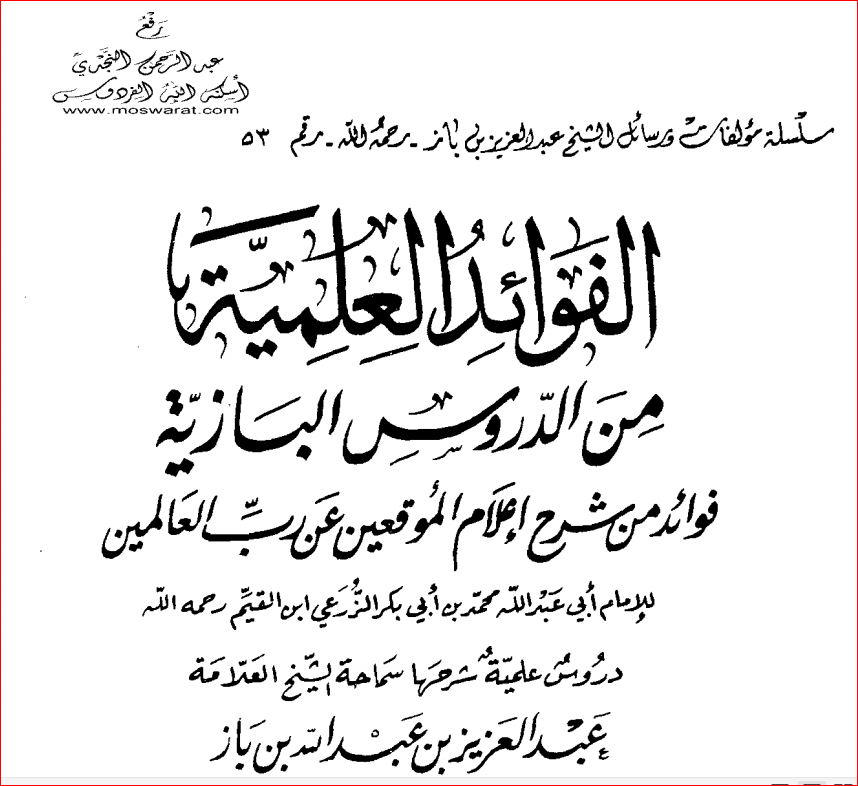 رَفْعُ
عبد الرَّحمن النَّجْديّ
أسكنه الله الفردوس
www.moswarat.com
سلسلة مؤلفات ورسائل الشيخ عبد العزيز بن باز - رحمه الله - رقم ٥٣
الفَوَائِدُ العِلمِيَّة
مِنَ الدّروسِ البَازيّة
فوائد من شرح إعلَام الموقعين عَن ربِّ العَالمين
للإمام أبي عَبْد اللّه محمّد بن أبي بكر الزُّرَعي ابن القيِّم رحمه الله
دروسٌ علميّةٌ شرحَها سمَاحة الشّيخ العَلّامَة
عَبْد العَزيز بن عَبْد الله بن بَاز